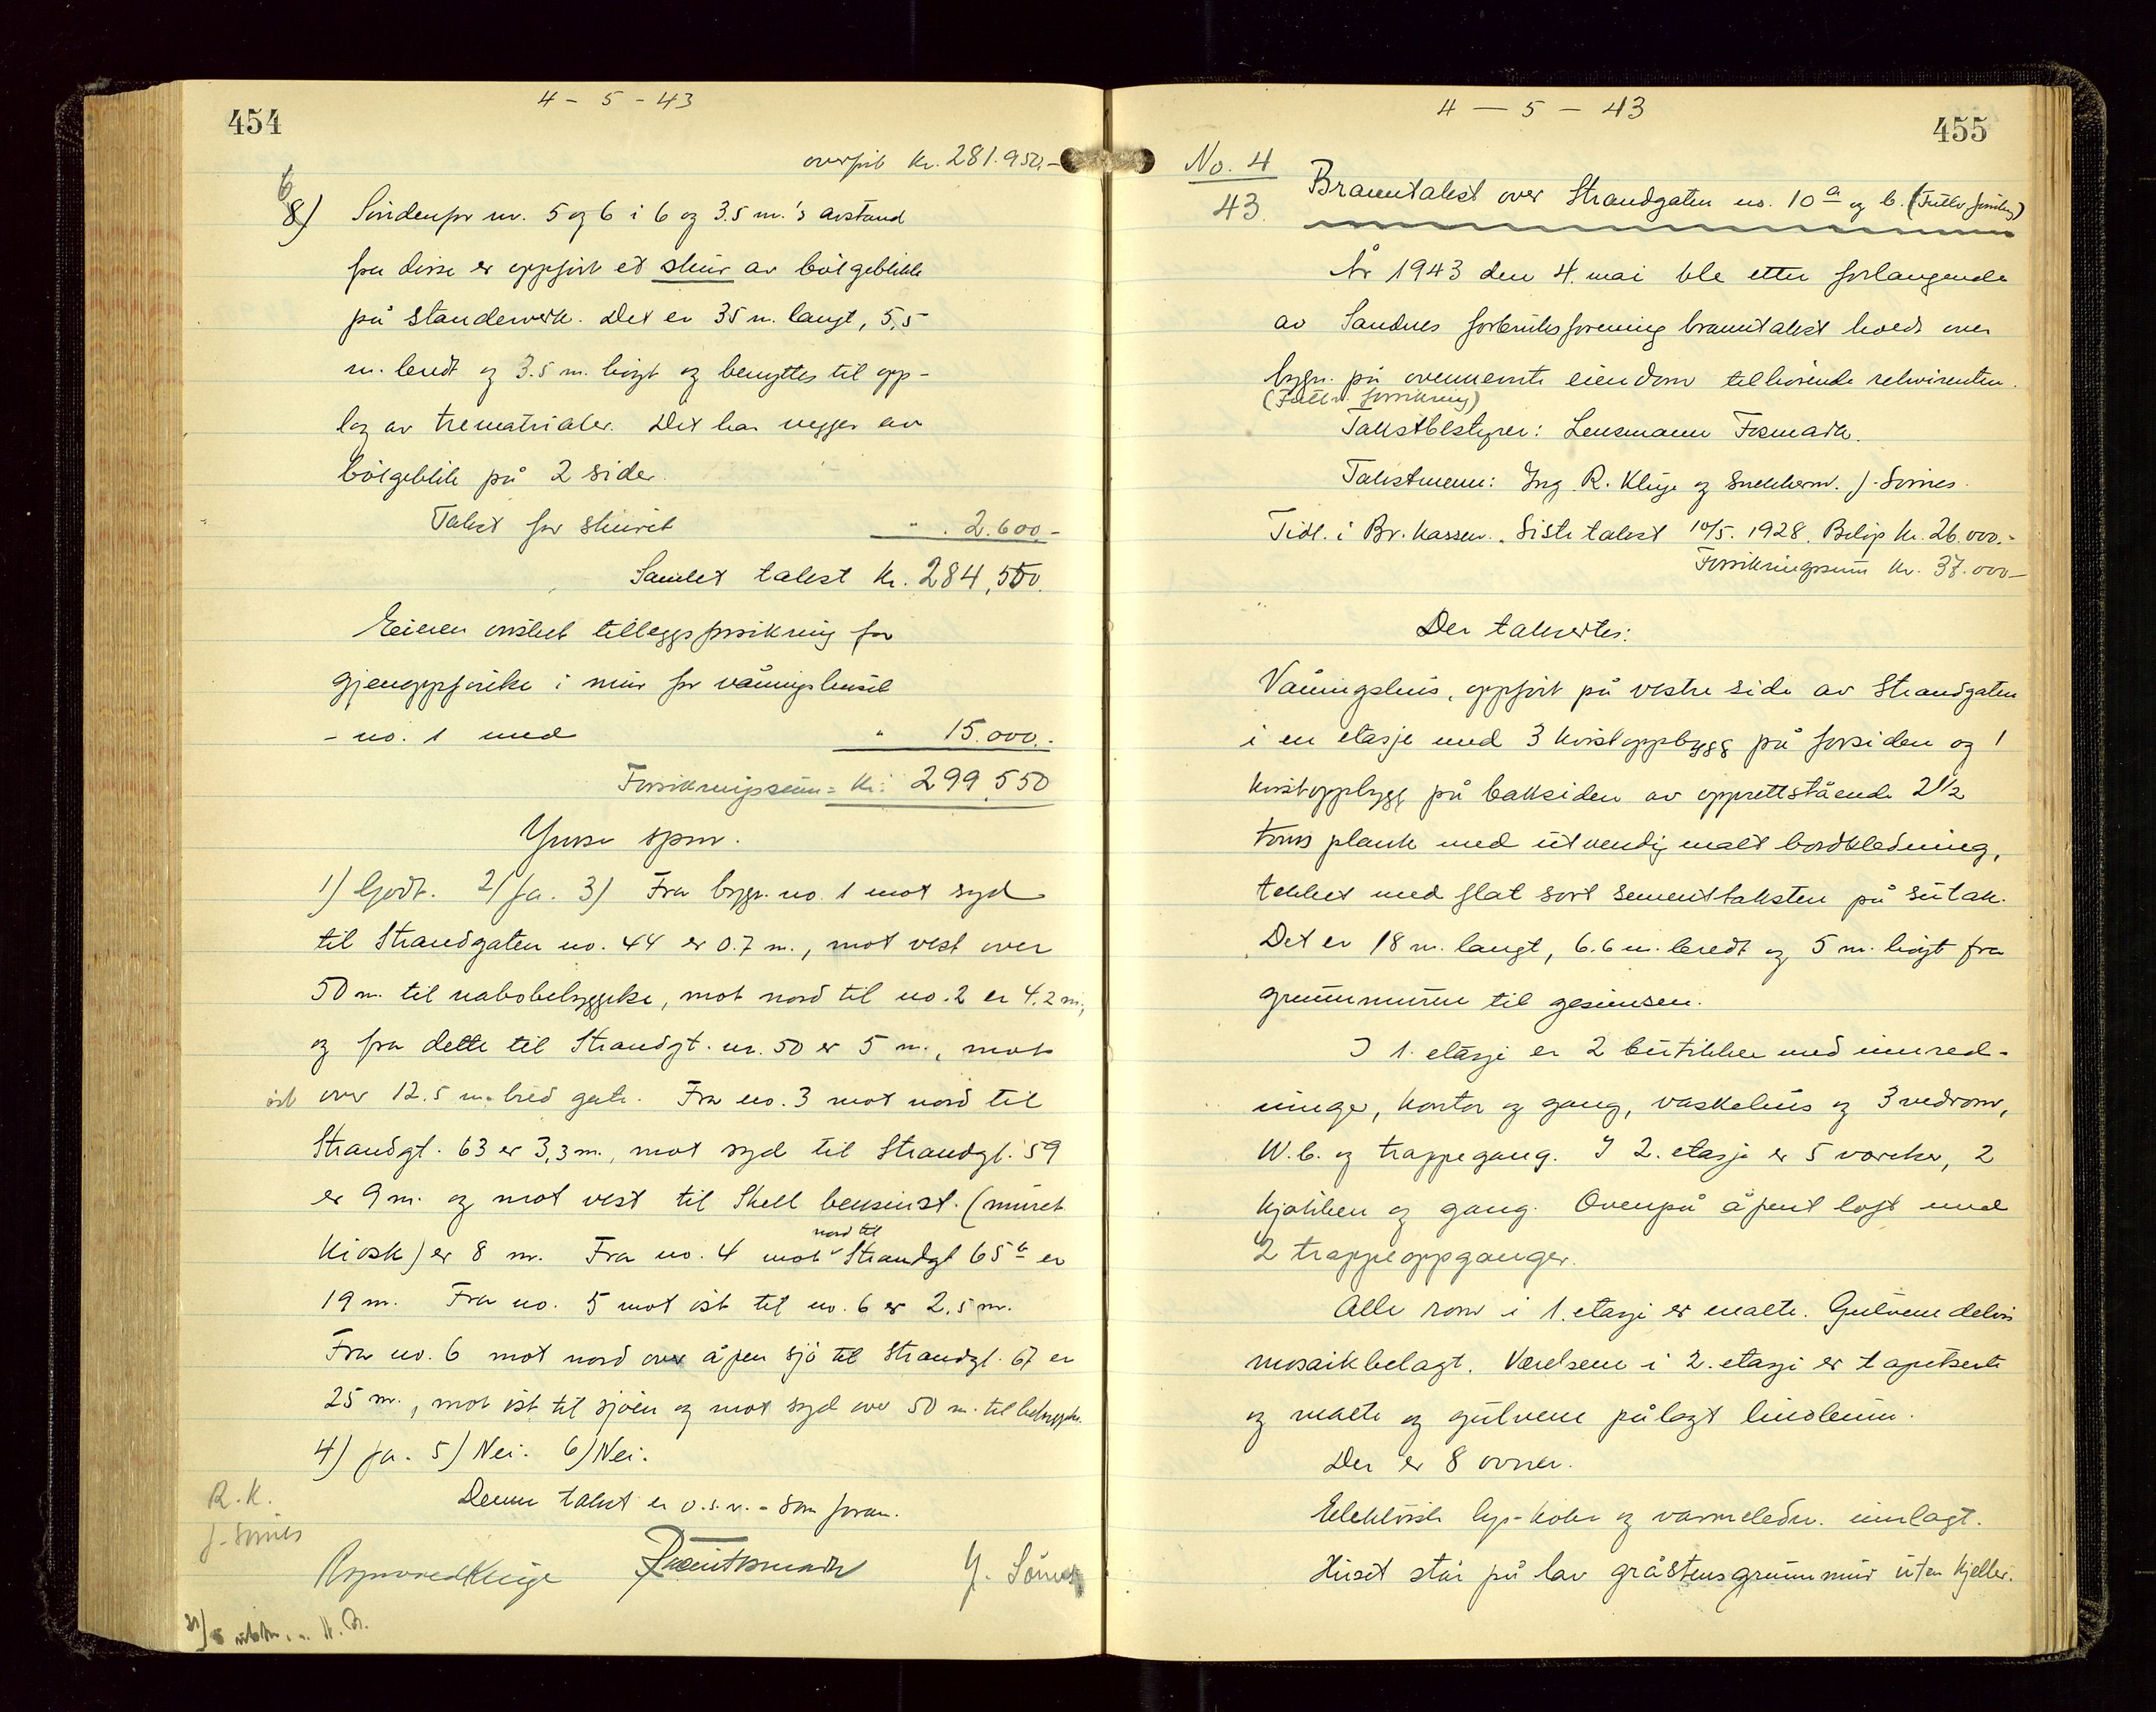 4 - 5 - 43
454
overført kr. 281.950,-
8) Søndenfor nr. 5 og 6 i 6 og 3.5 m.'s avstand
fra disse er oppført et skur av bølgeblikk
på standerverk. Det er 35 m. langt, 5,5
m. bredt og 3.5 m. høgt og benyttes til opp-
lag av trematrialer. Det har vegger av
bølgeblikk på 2 sider.
Takst for skuret " . 2.600,-
Samlet takst kr. 284,550.
Eieren ønsket tilleggsforsikring for
gjenoppførelse i mur for våningshuset
- no. 1 med " 15.000.-
Forsikringssum = kr: 299.550
Ymse spm.
1) Godt. 2) Ja. 3) Fra bygn. no. 1 mot syd
til Strandgaten no. 44 er 0.7 m., mot vest over
50 m. til nabobebyggelse, mot nord til no. 2 er 4.2 m,
og fra dette til Strandgt. nr. 50 er 5 m., mot
øst over 12.5 m. bred gate. Fra no. 3 mot nord til
Strandgt. 63 er 3,3 m., mot syd til Strandgt. 59
er 9 m. og mot vest til Shell bensinst. (muret
nord til
Kiosk) er 8 m. Fra no. 4 mot Strandgt 65 b er
19 m. Fra no. 5 mot øst til no. 6 er 2,5 m.
Fra no. 6 mot nord over åpen sjø til Strandgt. 67 er
25 m., mot øst til sjøen og mot syd over 50 m. til bebyggelse.
4) Ja. 5) Nei. 6) Nei.
R. K. Denne takst er o.s.v. - som foran.
J. Sömes
Rognvald Kluge J. Sömes
4 — 5 - 43
455
No. 4
43. Branntakst over Strandgaten no. 10 a og b. (Fullv. forsikring)
År 1943 den 4. mai ble etter forlangende
av Sandnes forbruksforening branntakst holdt over
bygn. på ovennevnte eiendom tilhørende rekvirenten.
(Fullv. forsikring)
Takstbestyrer: Lensmann Fosmark.
Takstmenn: Ing. R. Kluge og snekkerm. J. Sömes.
Tidl. i Br. kassen. Siste takst 10/5. 1928. Beløp kr. 26.000.-
Forsikringssum kr. 37.000-
Der takseres:
Våningshus, oppført på vestre side av Strandgaten
i en etasje med 3 kvistoppbygg på forsiden og 1
kvistoppbygg på baksiden av opprettstående 2½
toms plank med utvendig malt bordkledning,
tekket med flat sort sementtaksten på sutak.
Det er 18 m. langt, 6.6 m. bredt og 5 m. høgt fra
grunnmuren til gesimsen.
I 1. etasje er 2 butikker med innred-
ninger, kontor og gang, vaskehus og 3 vedrom,
W.C. og trappegang. I 2. etasje er 5 værelser, 2
kjøkken og gang. Ovenpå åpent loft med
2 trappeoppganger.
Alle rom i 1. etasje er malte. Gulvene delvis
mosaikbelagt. Værelsene i 2. etasje er tapetserte
og malte og gulvene pålagt linoleum.
Der er 8 ovner.
Elektrisk lys- koke og varmeledn. innlagt.
Huset står på lav gråstensgrunnmur uten kjeller.